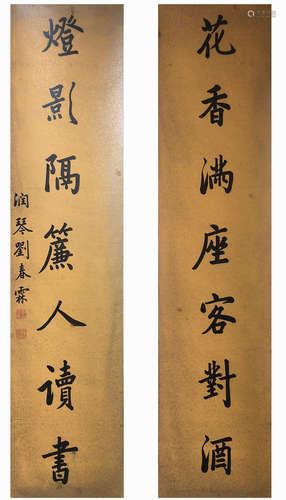 花香满座客對酒
燈影隔簾人讀書
润琴劉春霖